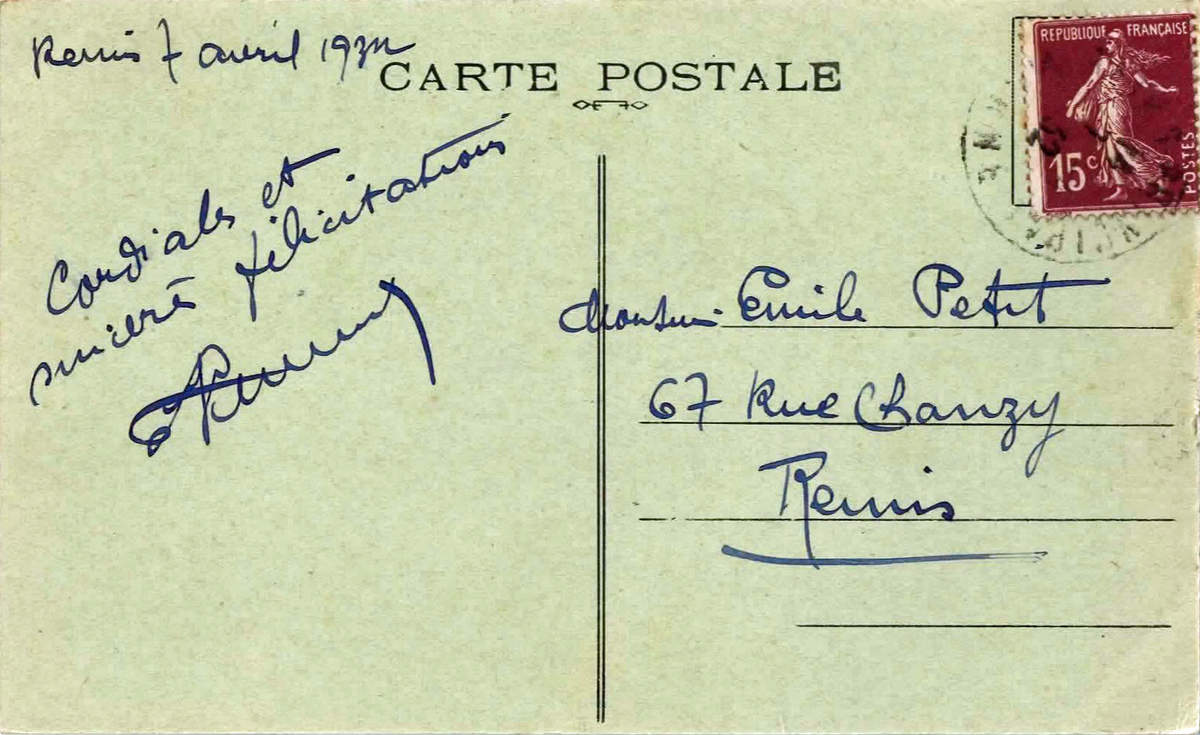 Reims 7 avril 1932
CARTE POSTALE
REPUBLIQUE FRANÇAISE
15c
POSTES
Cordiales et
sincères félicitations
Monsieur Emile Petit
67 Rue Chanzy
Reims